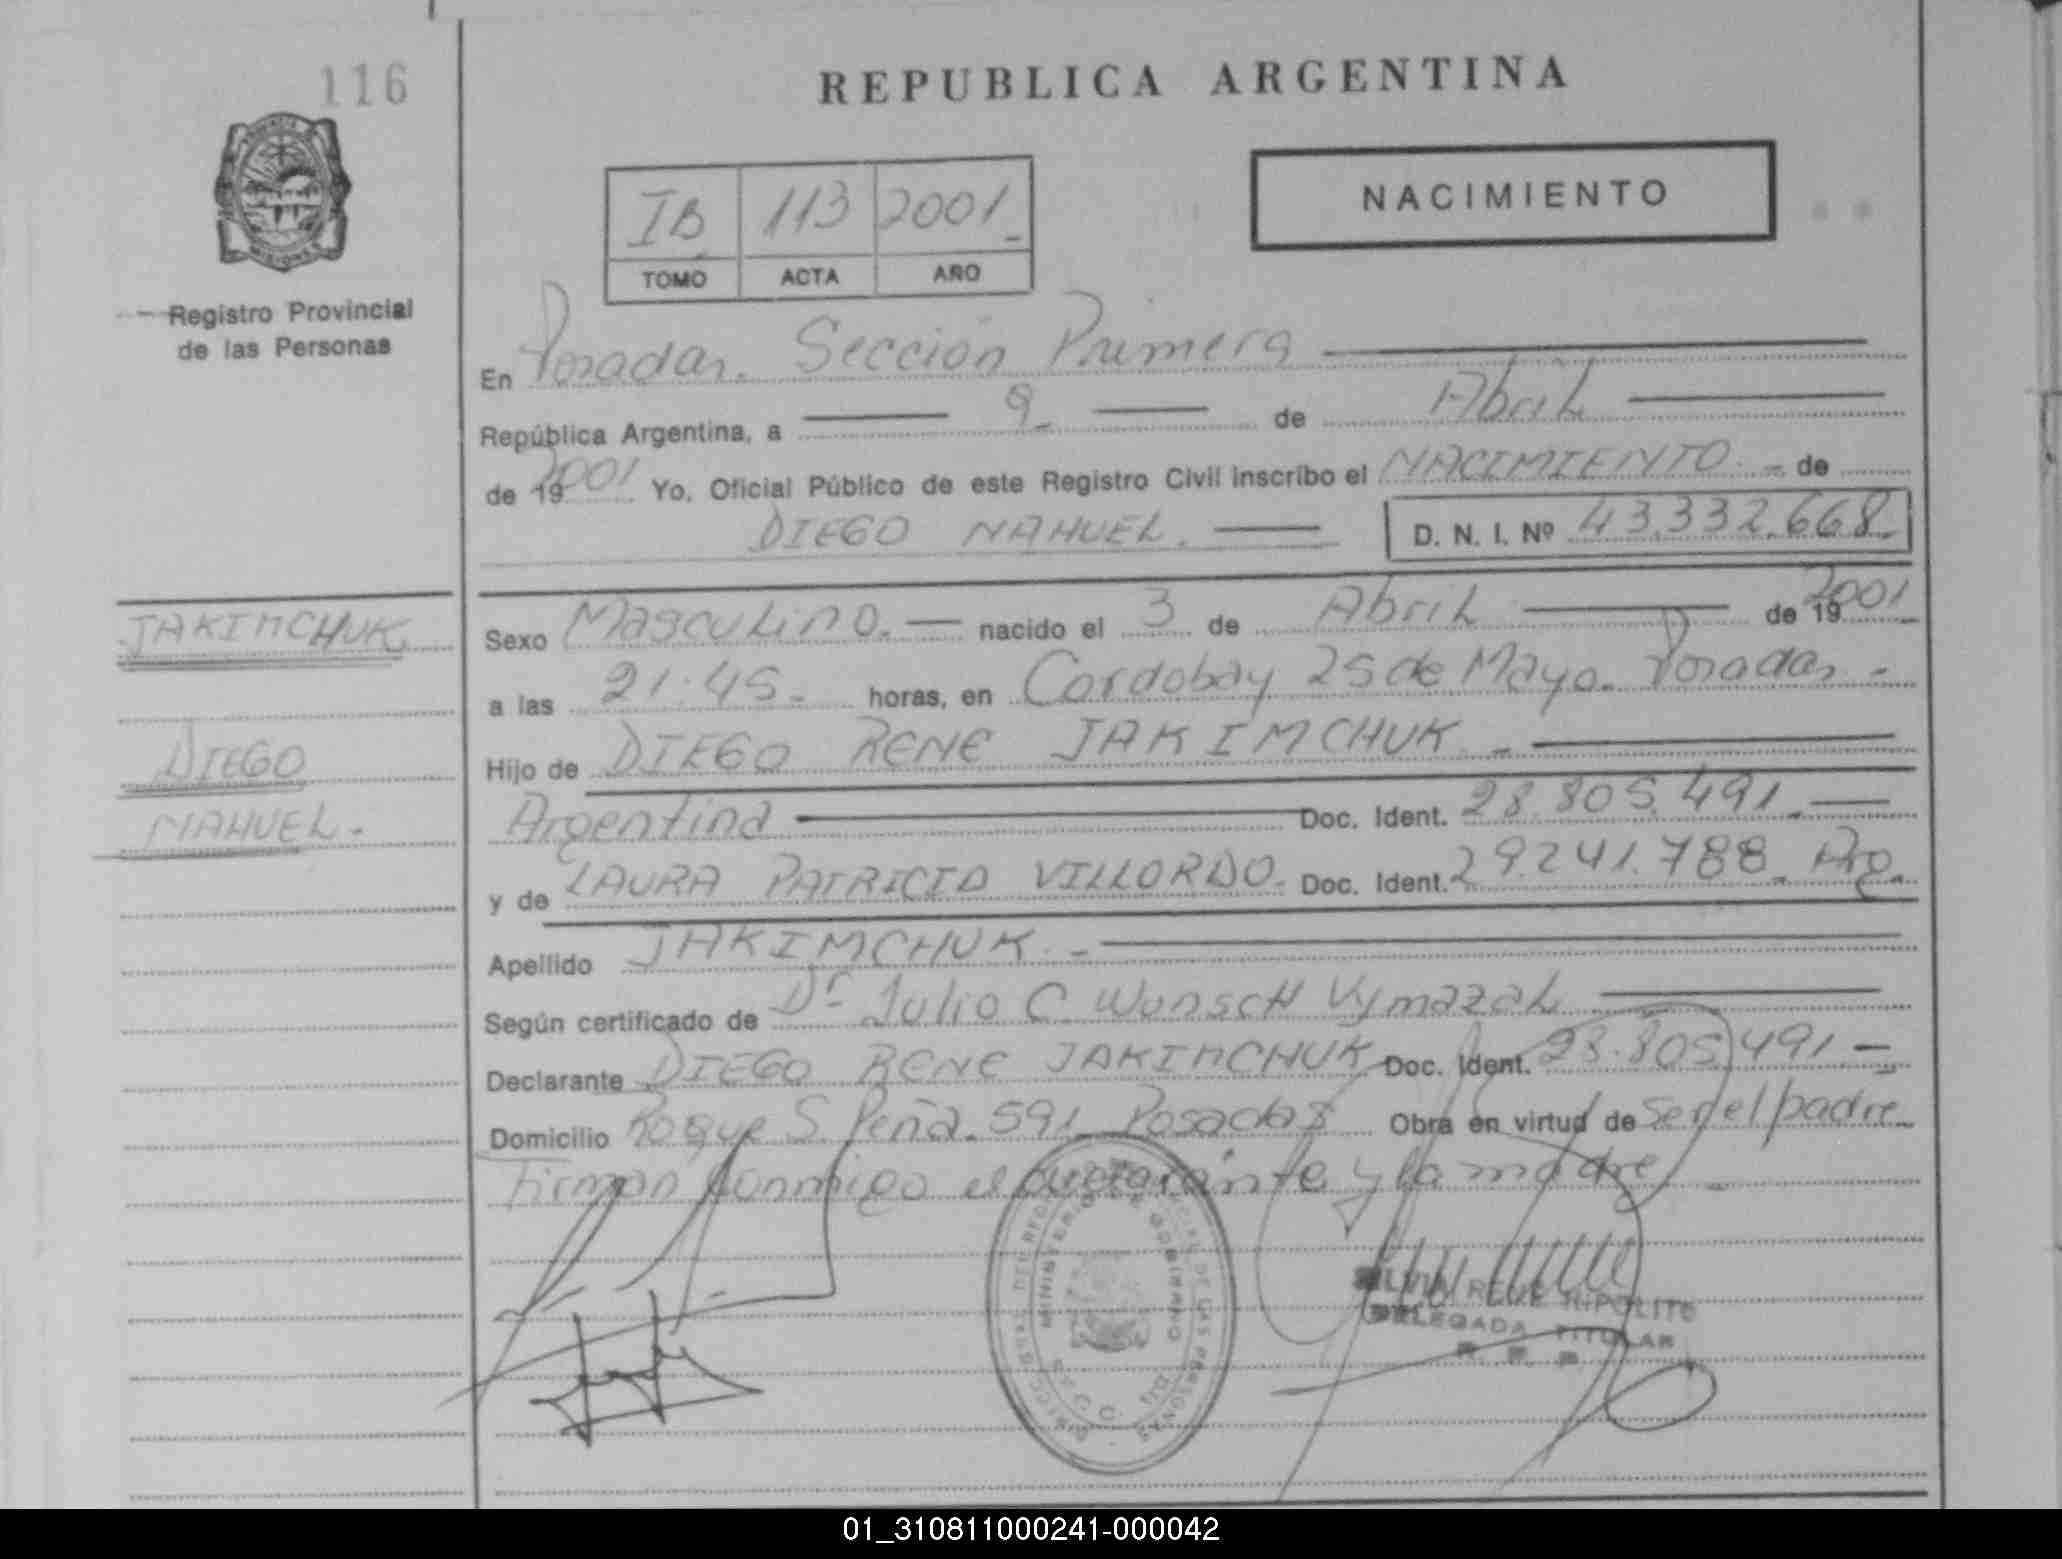 116
REPUBLICA ARGENTINA
IB 113 2001
TOMO ACTA AÑO
NACIMIENTO
MISIONES
Registro Provincial
de las Personas
En Posadas. Sección Primera
República Argentina, a 9 de Abril
de 19 2001 Yo, Oficial Público de este Registro Civil inscribo el NACIMIENTO. de
DIEGO NAHUEL. D. N. I. Nº 43.332.668
JAKIMCHUK
DIEGO
NAHUEL.
Sexo Masculino. nacido el 3 de Abril de 19 2001
a las 21.45. horas, en Cordoba y 25 de Mayo. Posadas
Hijo de DIEGO RENE JAKIMCHUK
Argentina Doc. Ident. 28.805.491
y de LAURA PATRICIA VILLORDO. Doc. Ident. 29.241.788. Arg.
Apellido JAKIMCHUK.
Según certificado de Dr Julio C. Wunsch Vymazal
Declarante DIEGO RENE JAKIMCHUK Doc. Ident. 28.805.491
Domicilio Roque S. Peña. 591 Posadas Obra en virtud de Ser el padre
Firman conmigo el declarante y la madre
MINISTERIO DE GOBIERNO
SILVIA RENE HIPOLITO
DELEGADA TITULAR
R. P. P.
01_310811000241-000042